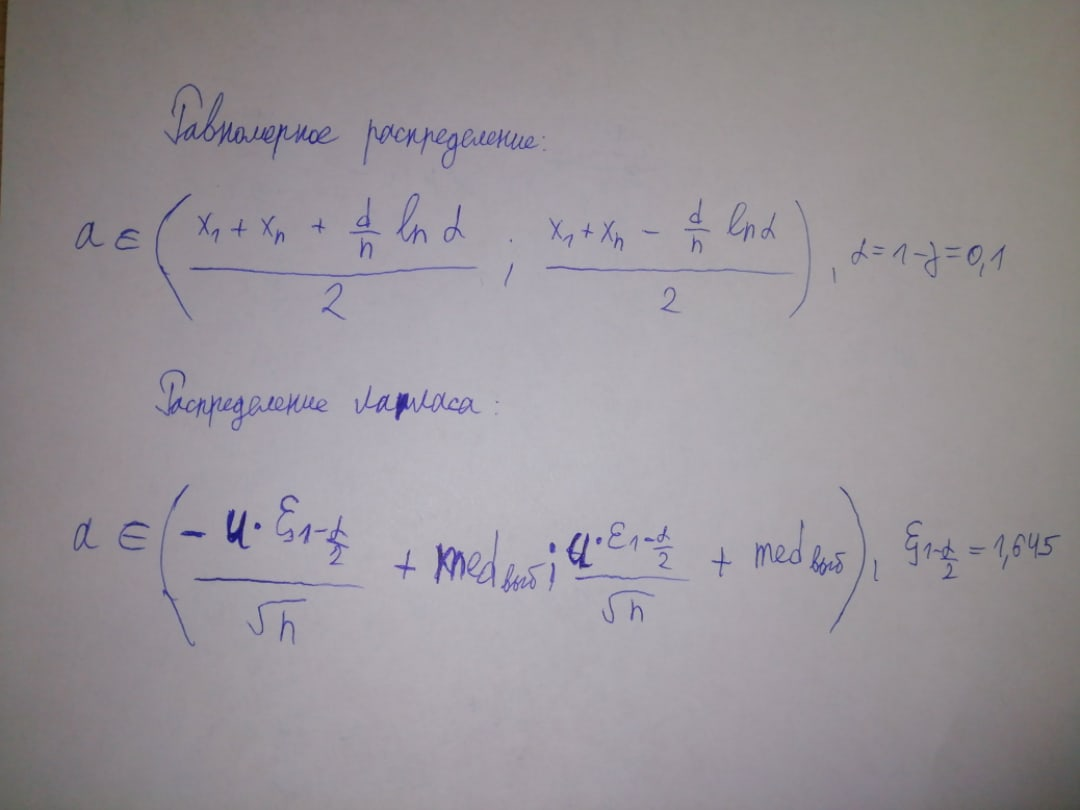 Равномерное распределение:
a ∈ ( (x₁ + xₙ + d/n ln α) / 2 ; (x₁ + xₙ − d/n ln α) / 2 ), α = 1 − γ = 0,1
Распределение Лапласа:
a ∈ ( (− u · ξ₁₋α/₂) / √n + med выб ; (u · ξ₁₋α/₂) / √n + med выб ), ξ₁₋α/₂ = 1,645